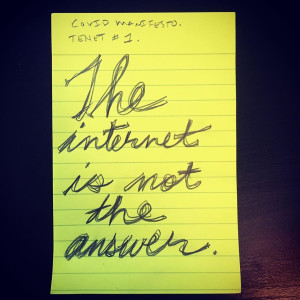 COVID MANIFESTO.
TENET #1.
The
internet
is not
the
answer.